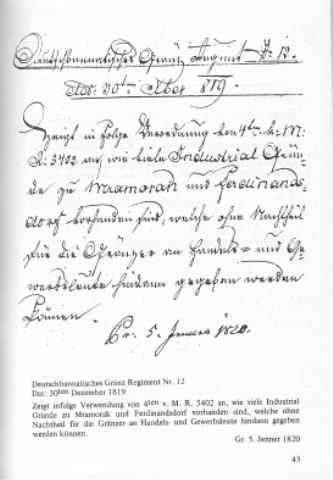 Deutschbannatisches Gränz Regiment Nr. 12.
Dat: 30ten Xber 819.
Zeigt in Folge Verordnung vom 4ten v: M:
R: 5402 an, wie viele Industrial Grün-
de zu Mramorak und Ferdinands-
dorf vorhanden sind, welche ohne Nachtheil
für die Gränzer an Handels- und Ge-
werbsleute hindann gegeben werden
können.
Gr: 5. Jenner 1820.
Deutschbannatisches Gränz Regiment Nr. 12
Dat: 30ten Dezember 1819
Zeigt infolge Verwendung von 4ten v. M. R. 5402 an, wie viele Industrial
Gründe zu Mramorak und Ferdinandsdorf vorhanden sind, welche ohne
Nachtheil für die Gränzer an Handels- und Gewerbsleute hindann gegeben
werden können.
Gr. 5. Jenner 1820
43